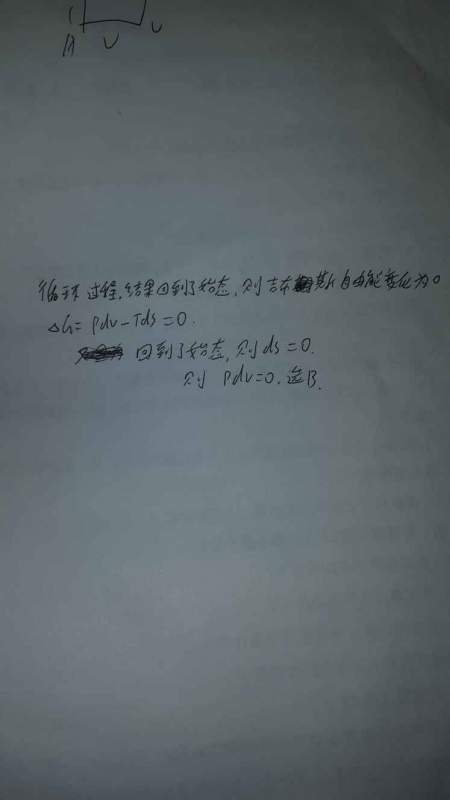 A V V
循环过程,结果回到了始态,则吉布斯自由能变化为0
△G= Pdv-Tds=0.
回到了始态,则ds=0.
则 Pdv=0.选B.